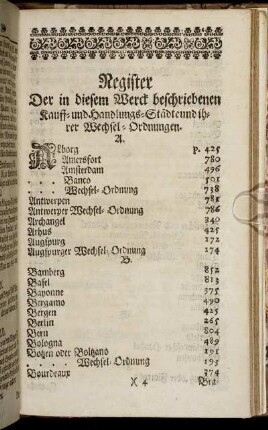 Register
Der in diesem Werck beschriebenen
Kauff- und Handlungs-Städte und ih-
rer Wechsel-Ordnungen.
A.
Alborg p. 425
Amersfort 780
Amsterdam 496
- - - Banco 501
- - - Wechsel-Ordnung 738
Antwerpen 781
Antwerper Wechsel-Ordnung 786
Archangel 340
Arhus 425
Augspurg 172
Augspurger Wechsel-Ordnung 174
B.
Bamberg 852
Basel 813
Bayonne 375
Bergamo 490
Bergen 425
Berlin 265
Bern 804
Bologna 489
Botzen oder Boltzano 191
- - - Wechsel-Ordnung 193
Bourdeaux 374
X 4 Bra-